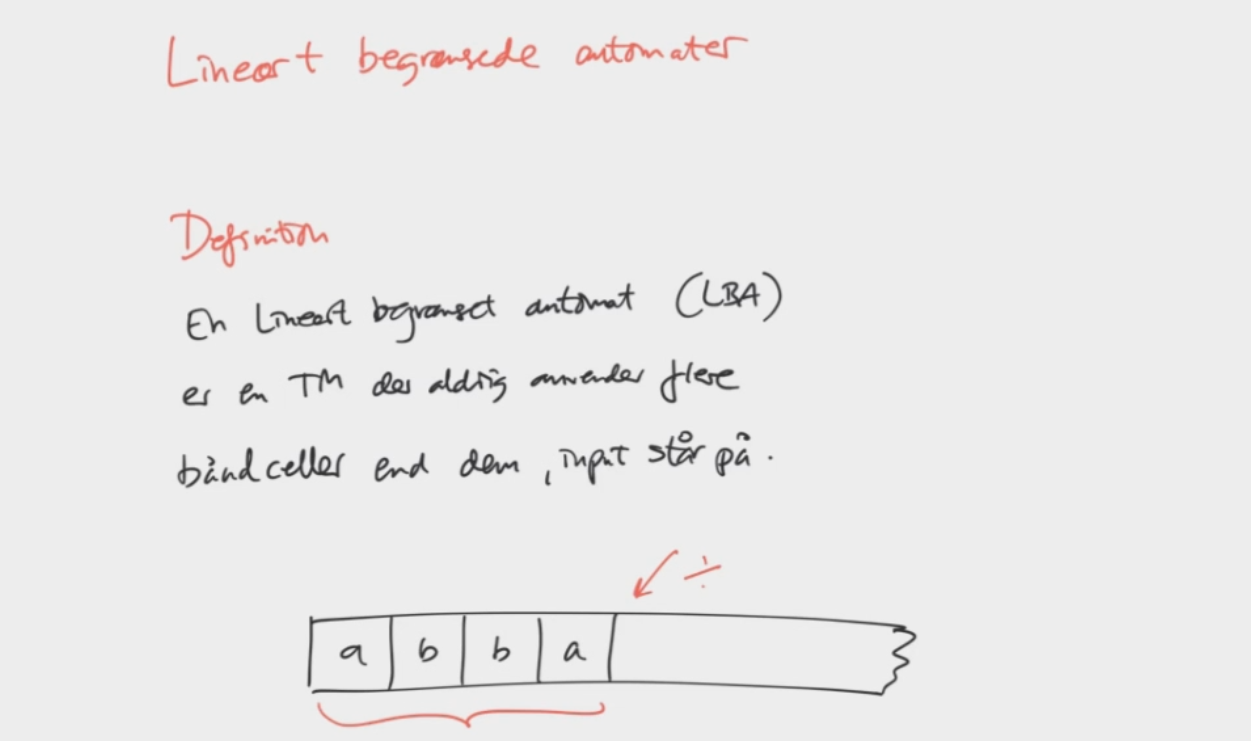 Lineært begrænsede automater
Definition
En Lineært begrænset automat (LBA)
er en TM der aldrig anvender flere
båndceller end dem, input står på.
÷
a b b a